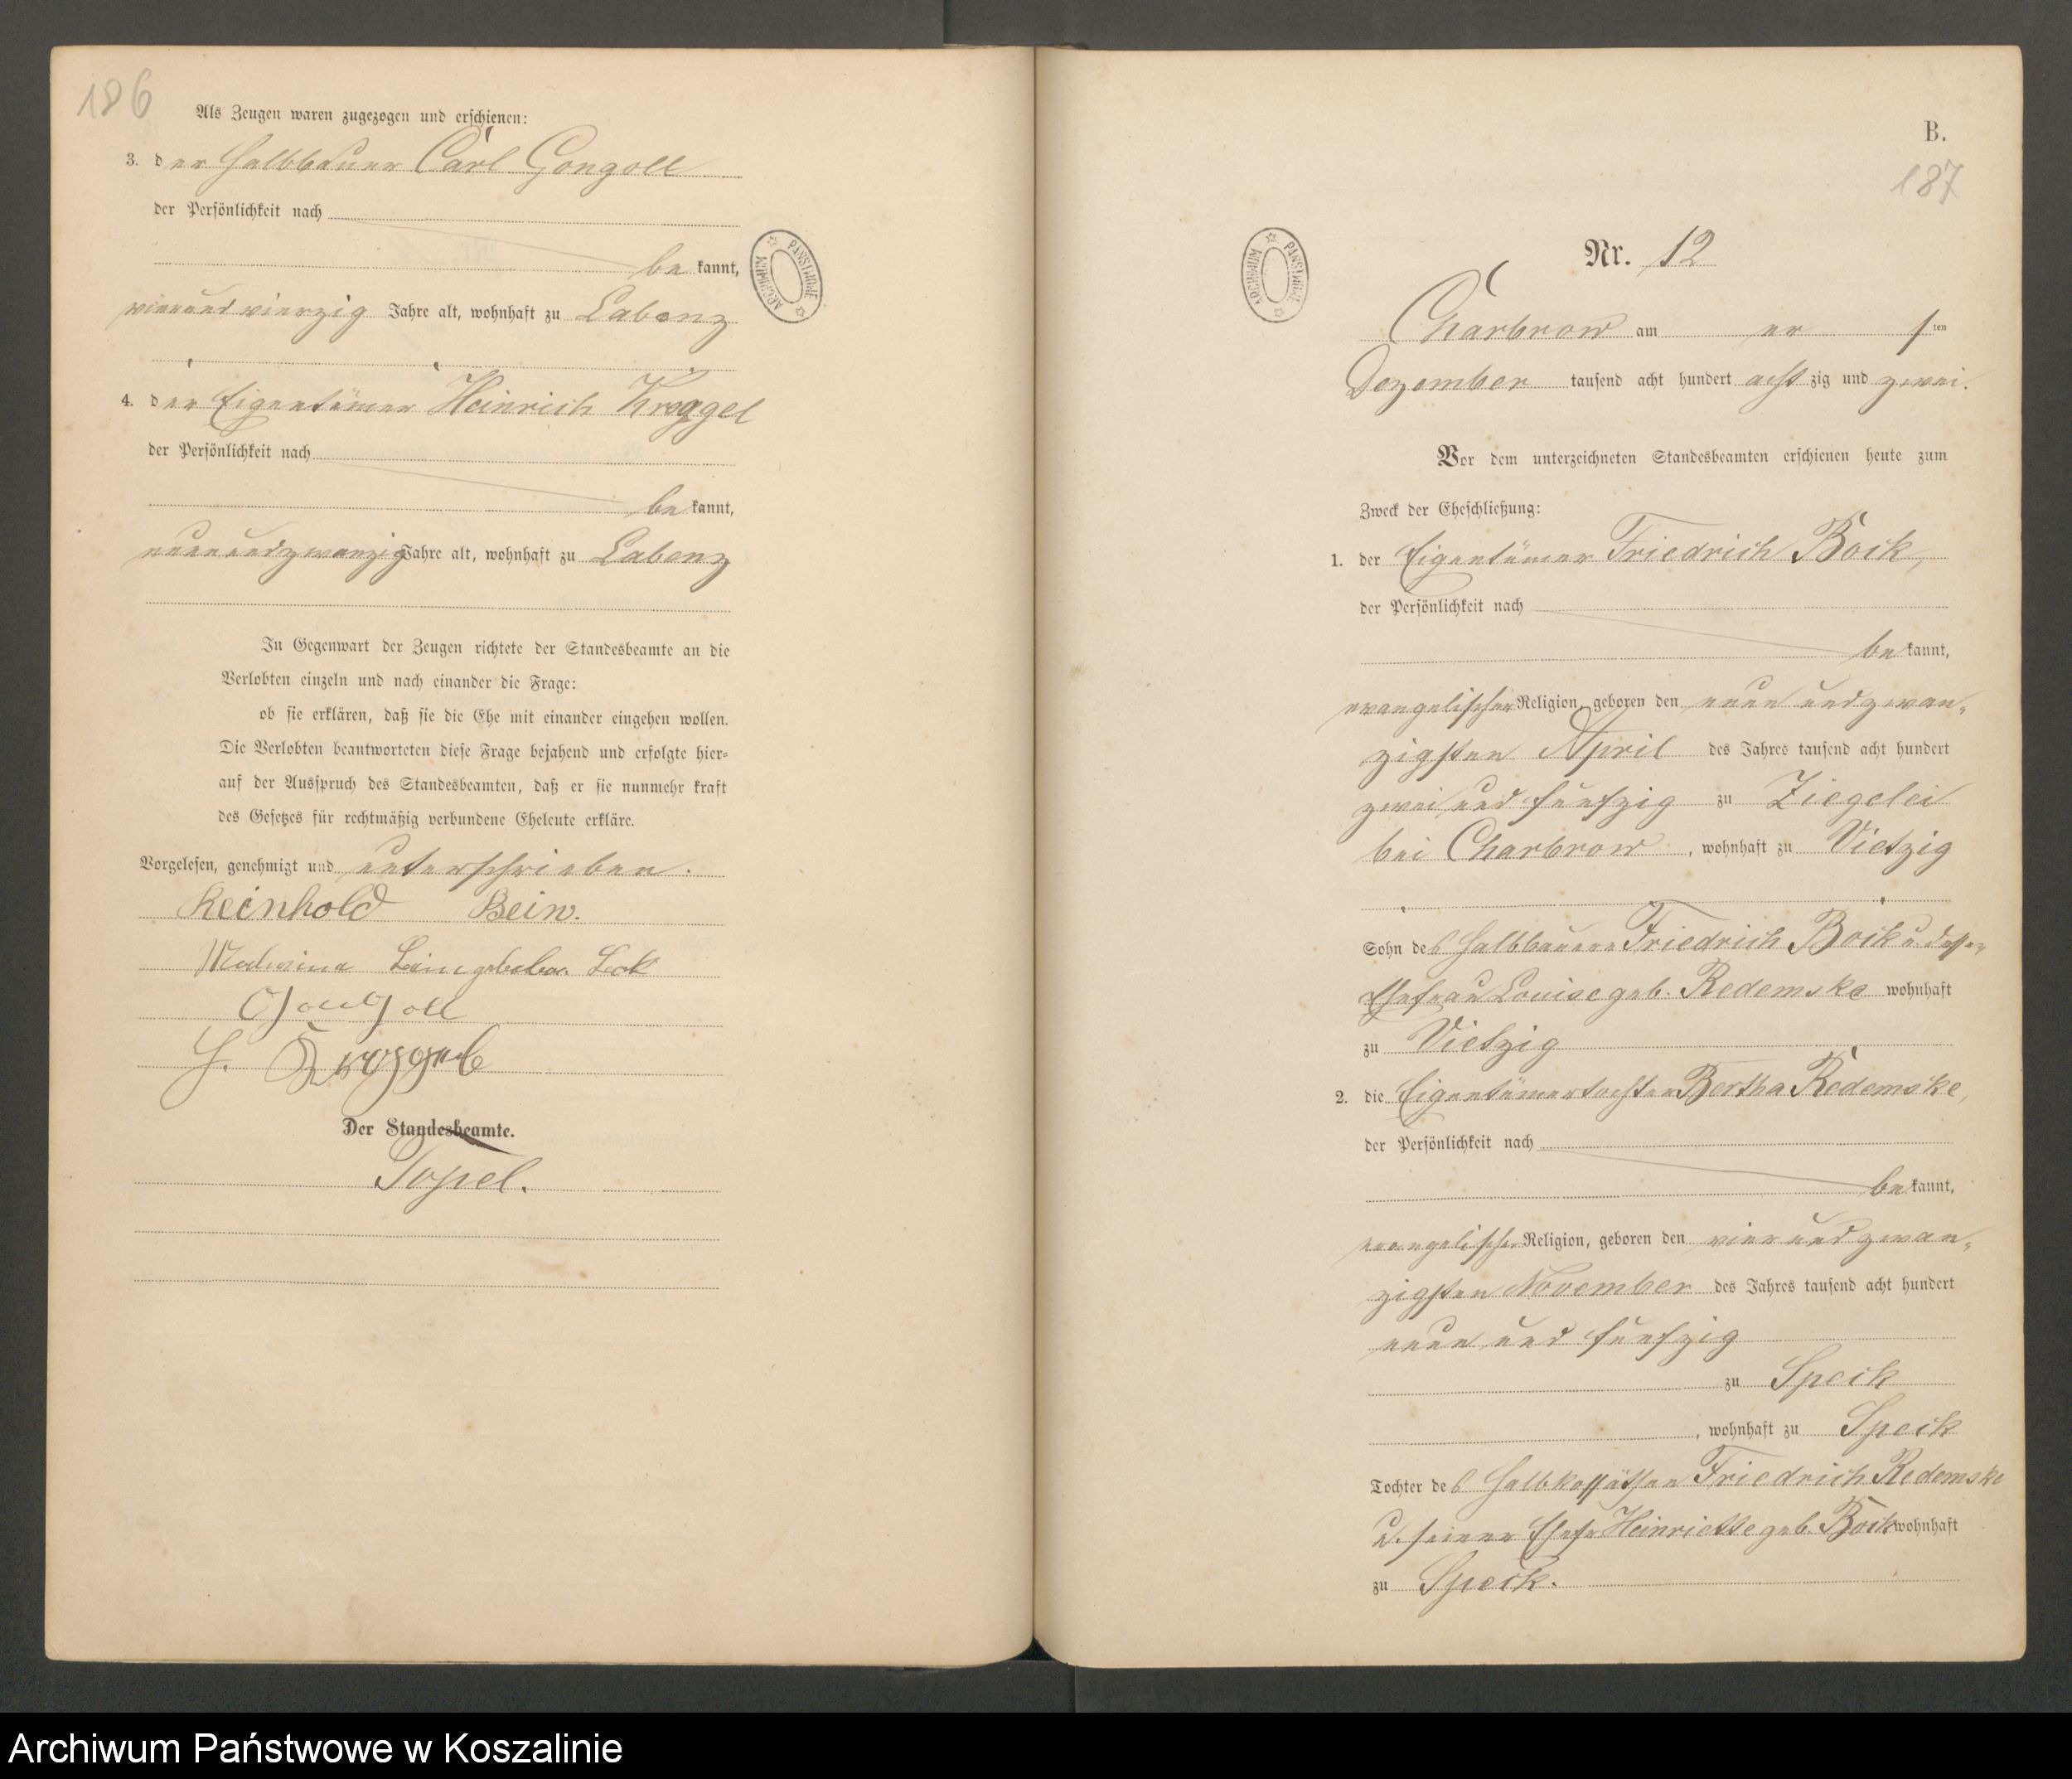 186
Als Zeugen waren zugezogen und erschienen:
3. der Halbbauer Carl Gongoll
der Persönlichkeit nach
be kannt,
vierundvierzig Jahre alt, wohnhaft zu Labenz
4. der Eigentümer Heinrich Kroggel
der Persönlichkeit nach
be kannt,
neunundzwanzig Jahre alt, wohnhaft zu Labenz
In Gegenwart der Zeugen richtete der Standesbeamte an die
Verlobten einzeln und nach einander die Frage:
ob sie erklären, daß sie die Ehe mit einander eingehen wollen.
Die Verlobten beantworteten diese Frage bejahend und erfolgte hier-
auf der Ausspruch des Standesbeamten, daß er sie nunmehr kraft
des Gesetzes für rechtmäßig verbundene Eheleute erkläre.
Vorgelesen, genehmigt und unterschrieben.
Reinhold Bein.
Gongoll
H. Kroggel
Der Standesbeamte.
Topel.
ARCHIWUM PAŃSTWOWE
B.
187
ARCHIWUM PAŃSTWOWE
Nr. 12
Charbrow am er 1ten
Dezember tausend acht hundert acht zig und zwei.
Vor dem unterzeichneten Standesbeamten erschienen heute zum
Zweck der Eheschließung:
1. der Eigentümer Friedrich Bock,
der Persönlichkeit nach
be kannt,
evangelischer Religion, geboren den neun und zwan-
zigsten April des Jahres tausend acht hundert
zwei und fünfzig zu Ziegelei
bei Charbrow, wohnhaft zu Vietzig
Sohn des Halbbauern Friedrich Bock u. dessen
Ehefrau Louise geb. Redemske wohnhaft
zu Vietzig
2. die Eigentümertochter Bertha Redemske,
der Persönlichkeit nach
be kannt,
evangelischer Religion, geboren den vier und zwan-
zigsten November des Jahres tausend acht hundert
neun und fünfzig
zu Speck
, wohnhaft zu Speck
Tochter des Halbkossäthen Friedrich Redemske
u. seiner Ehefr Heinriette geb. Bock wohnhaft
zu Speck.
Archiwum Państwowe w Koszalinie